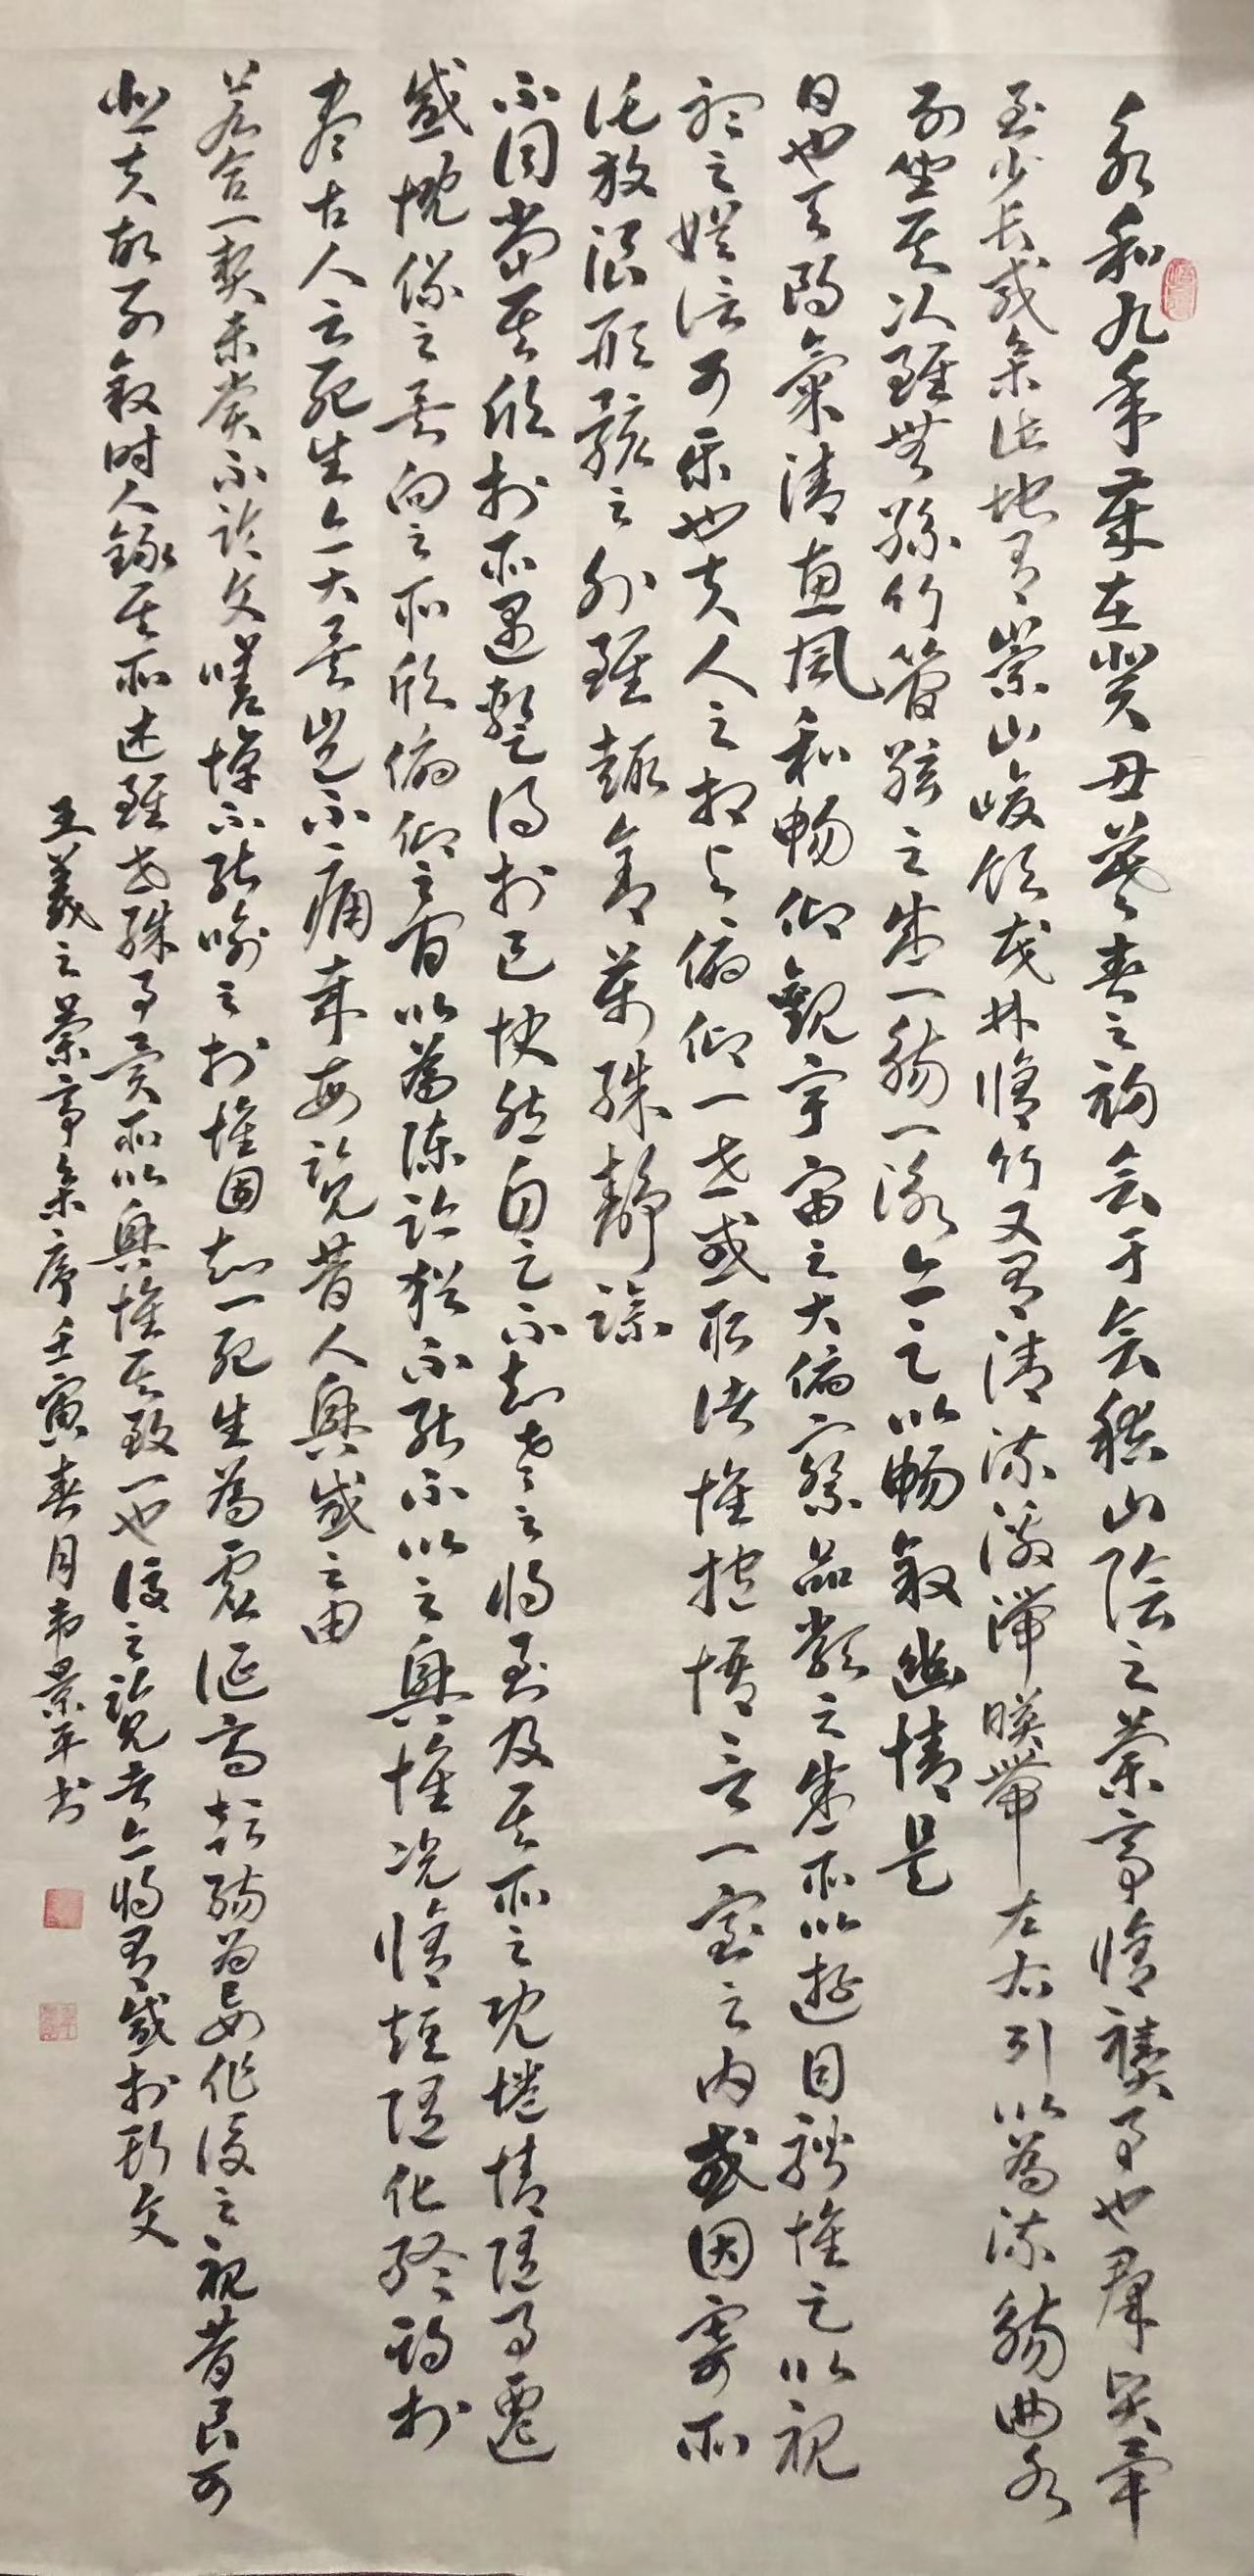 永和九年歲在癸丑暮春之初会于会稽山陰之蘭亭脩禊事也羣賢畢
至少長咸集此地有崇山峻領茂林脩竹又有清流激湍暎帶左右引以為流觴曲水
列坐其次雖無絲竹管弦之盛一觴一詠亦足以暢敘幽情是
日也天朗氣清惠風和暢仰觀宇宙之大俯察品類之盛所以遊目騁懷足以視
聽之娛信可樂也夫人之相與俯仰一世或取諸懷抱悟言一室之内或因寄所
託放浪形骸之外雖趣舍萬殊静躁
不同當其欣於所遇蹔得於己快然自足不知老之將至及其所之既惓情隨事遷
感慨係之矣向之所欣俯仰之間以為陳迹猶不能不以之興懷况脩短隨化終期於
盡古人云死生亦大矣豈不痛哉每覽昔人興感之由
若合一契未嘗不臨文嗟悼不能喻之於懷固知一死生為虛誕齊彭殤為妄作後之視昔良可
悲夫故列敘時人錄其所述雖世殊事異所以興懷其致一也後之覽者亦將有感於斯文
王羲之蘭亭集序壬寅春月韦景平书